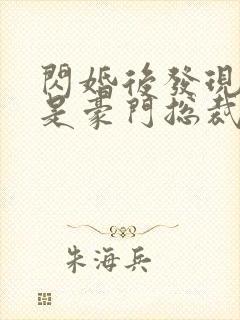 閃婚後發現
是豪門總裁
朱海兵